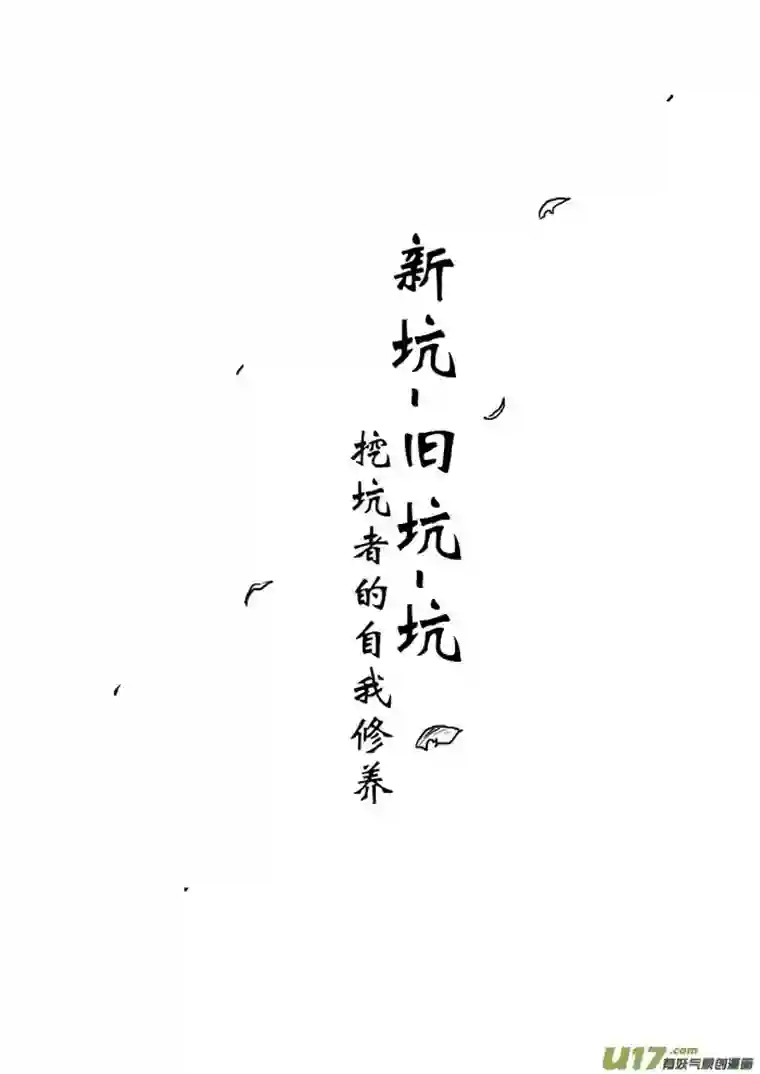 新坑-旧坑-坑
挖坑者的自我修养
U17.com
有妖气原创漫画